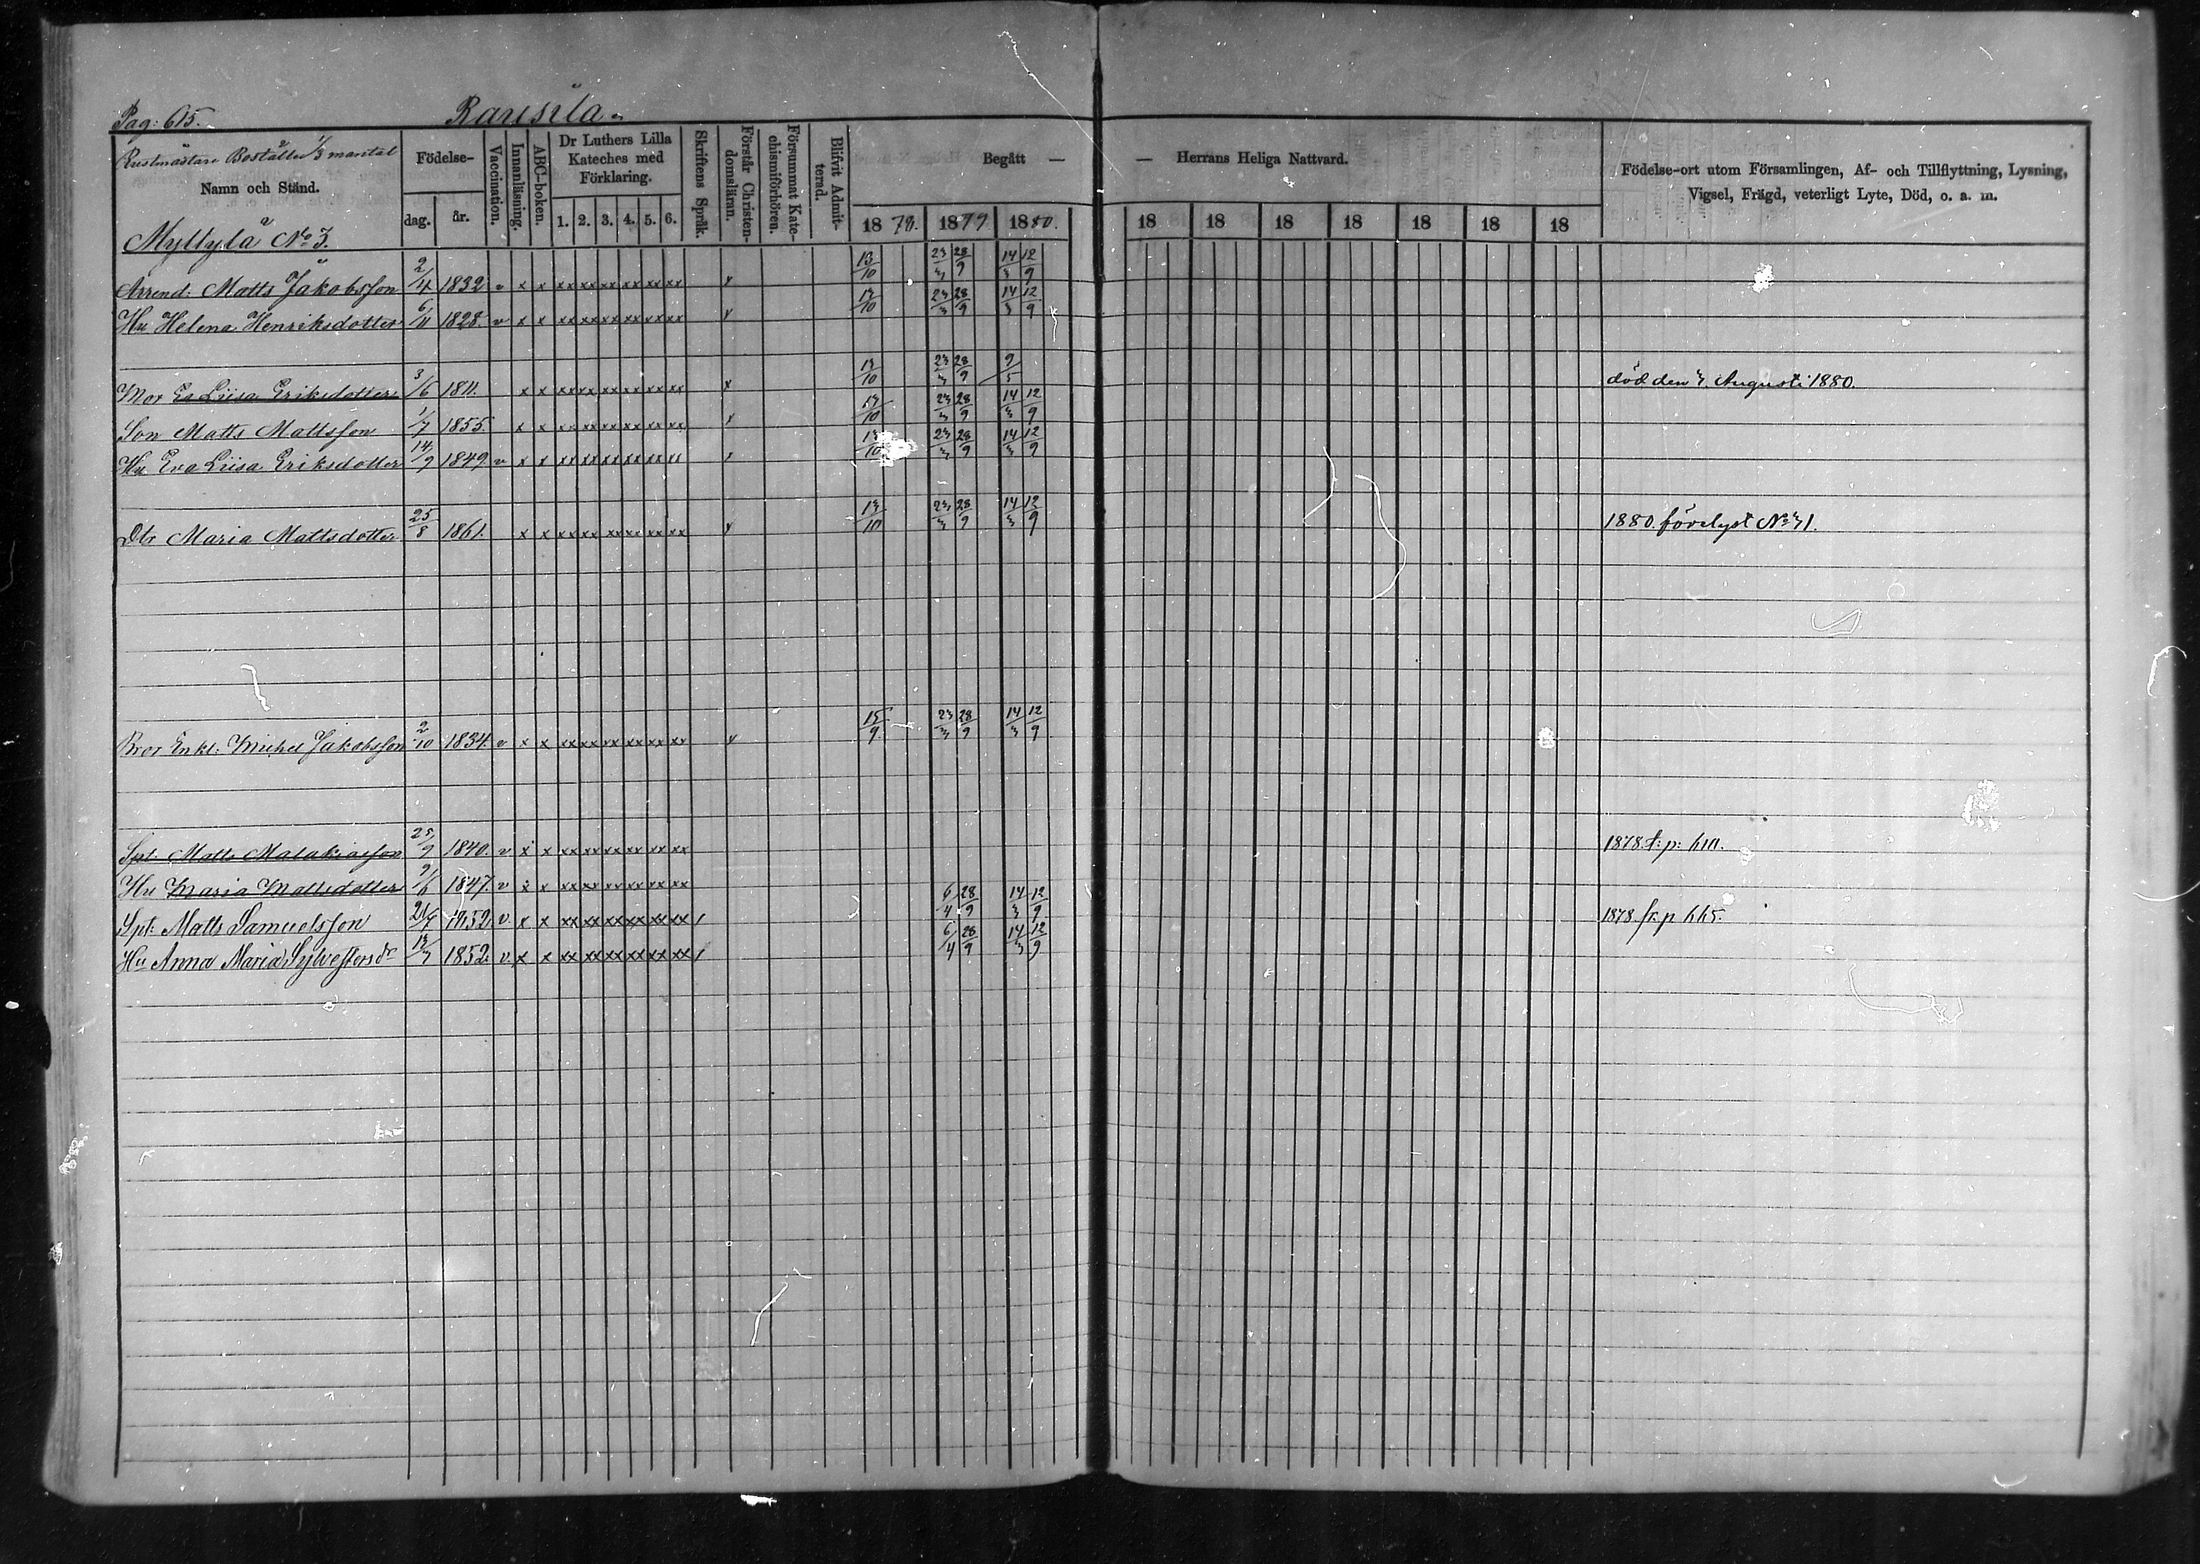 Pag: 615. Rausila
Rustmästare Boställe 1/3 mantal
Namn och Stånd.
Myllylä No 3.
Födelse-
dag. år.
Vaccination.
Innanläsning.
ABC-boken.
Dr Luthers Lilla
Kateches med
Förklaring.
1. 2. 3. 4. 5. 6.
Skriftens Språk.
Förstår Christen-
domsläran.
Försummat Kate-
chismiförhören.
Blifvit Admit-
terad.
Begått — — Herrans Heliga Nattvard.
1878. 1879 1880. 18 18 18 18 18 18 18
Födelse-ort utom Församlingen, Af- och Tillflyttning, Lysning,
Vigsel, Frägd, veterligt Lyte, Död, o. a. m.
Arrend: Matts Jakobsson 2/4 1832 v x x xx xx xx xx xx xx x 13/10 23/3 28/9 14/3 12/9
Hu Helena Henriksdotter 6/11 1828. v x x xx xx xx xx xx xx x 13/10 23/3 28/9 14/3 12/9
Mor Ea Liisa Eriksdotter 3/6 1811. x x xx xx xx xx xx xx x 13/10 23/3 28/9 9/5 död den 3. Augusti 1880.
Son Matts Mattsson 1/7 1855. x x xx xx xx xx xx xx x 13/10 23/3 28/9 14/3 12/9
Hu Eva Liisa Eriksdotter 14/9 1849. v x x xx xx xx xx xx xx x 13/10 23/3 28/9 14/3 12/9
Dtr Maria Mattsdotter 25/8 1861. x x xx xx xx xx xx xx x 13/10 23/3 28/9 14/3 12/9 1880. förelyst No 31.
Bror Enkl: Michel Jakobsson 2/10 1834. v x x xx xx xx xx xx xx x 15/9 23/3 28/9 14/3 12/9
Spt. Matts Malakiasson 25/9 1840. v x x xx xx xx xx xx xx 1878. t: p:
Hu Maria Mattsdotter 9/6 1847. v x x xx xx xx xx xx xx
Spt: Matts Samuelsson 1852. v. x x xx xx xx xx xx xx / 6/4 28/9 14/3 12/9 1878. fr. p.
Hu Anna Maria Sylvestersdr 13/7 1852. v. x x xx xx xx xx xx xx / 6/4 28/9 14/3 12/9